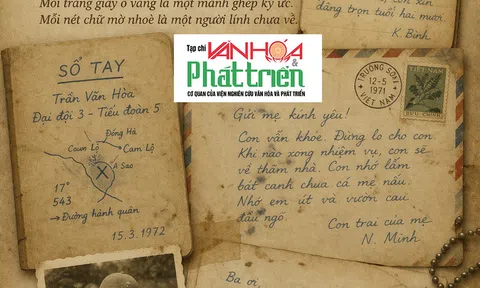 Mỗi trang giấy ố vàng là một mảnh ghép ký ức.
Mỗi nét chữ mờ nhoè là một người lính chưa về.
con xin
dâng trọn tuổi hai mươi
K. Bình.
Tạp chí
VĂN HÓA
&
Phát triển
CƠ QUAN CỦA VIỆN NGHIÊN CỨU VĂN HÓA VÀ PHÁT TRIỂN
SỔ TAY
Trần Văn Hòa
Đại đội 3 - Tiểu đoàn 5
Đông Há
Couu Lộ
Cam Lộ
A Sao
X
17°
543
→ Đường hành quân
15.3.1972
TRUONG SON
12-5
1971
VIET NAM
Gửi mẹ kính yêu!
Con vẫn khỏe. Đừng lo cho con
khi nào xong nhiệm vụ, con sẽ
về thăm nhà. Con nhớ lắm
bát canh chua cá mẹ nấu.
Nhớ em út và vườn cau
đầu ngõ.
Con trai của mẹ
N. Minh
Ba ơi,